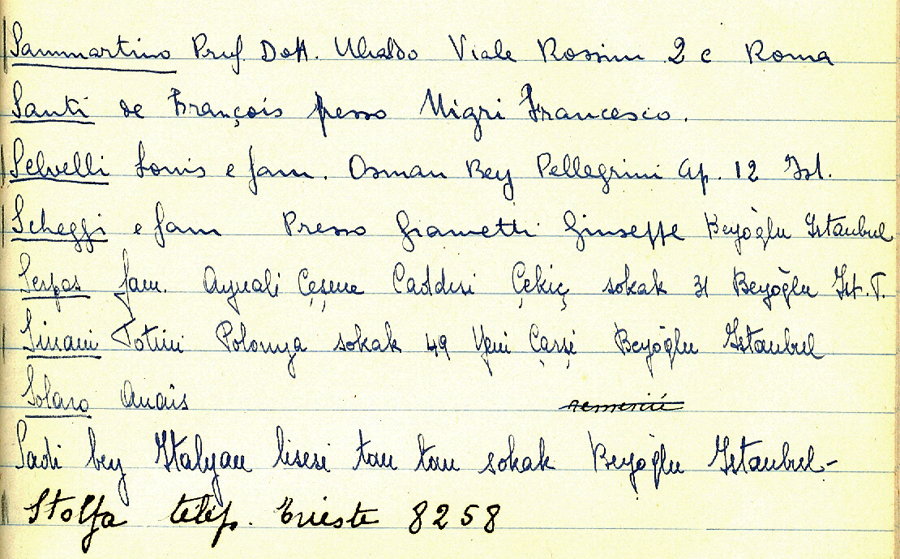 Sammartino Prof Dott. Ubaldo Viale Rossini 2 c Roma
Santi de François presso Nigri Francesco.
Selvelli Louis e fam. Osman Bey Pellegrini Ap. 12 Ist.
Scheggi e fam Presso Giametti Giuseppe Beyoğlu Istanbul
Serpos fam. Aynali Çeşme Caddesi Çekiç sokak 31 Beyoğlu Ist. T.
Sinani Totini Polonya sokak 49 Yeni Çarşi Beyoğlu Istanbul
Solaro Anais remercié
Sadi bey Italyan lisesi tom tom sokak Beyoğlu Istanbul-
Stolfa telef. Trieste 8258